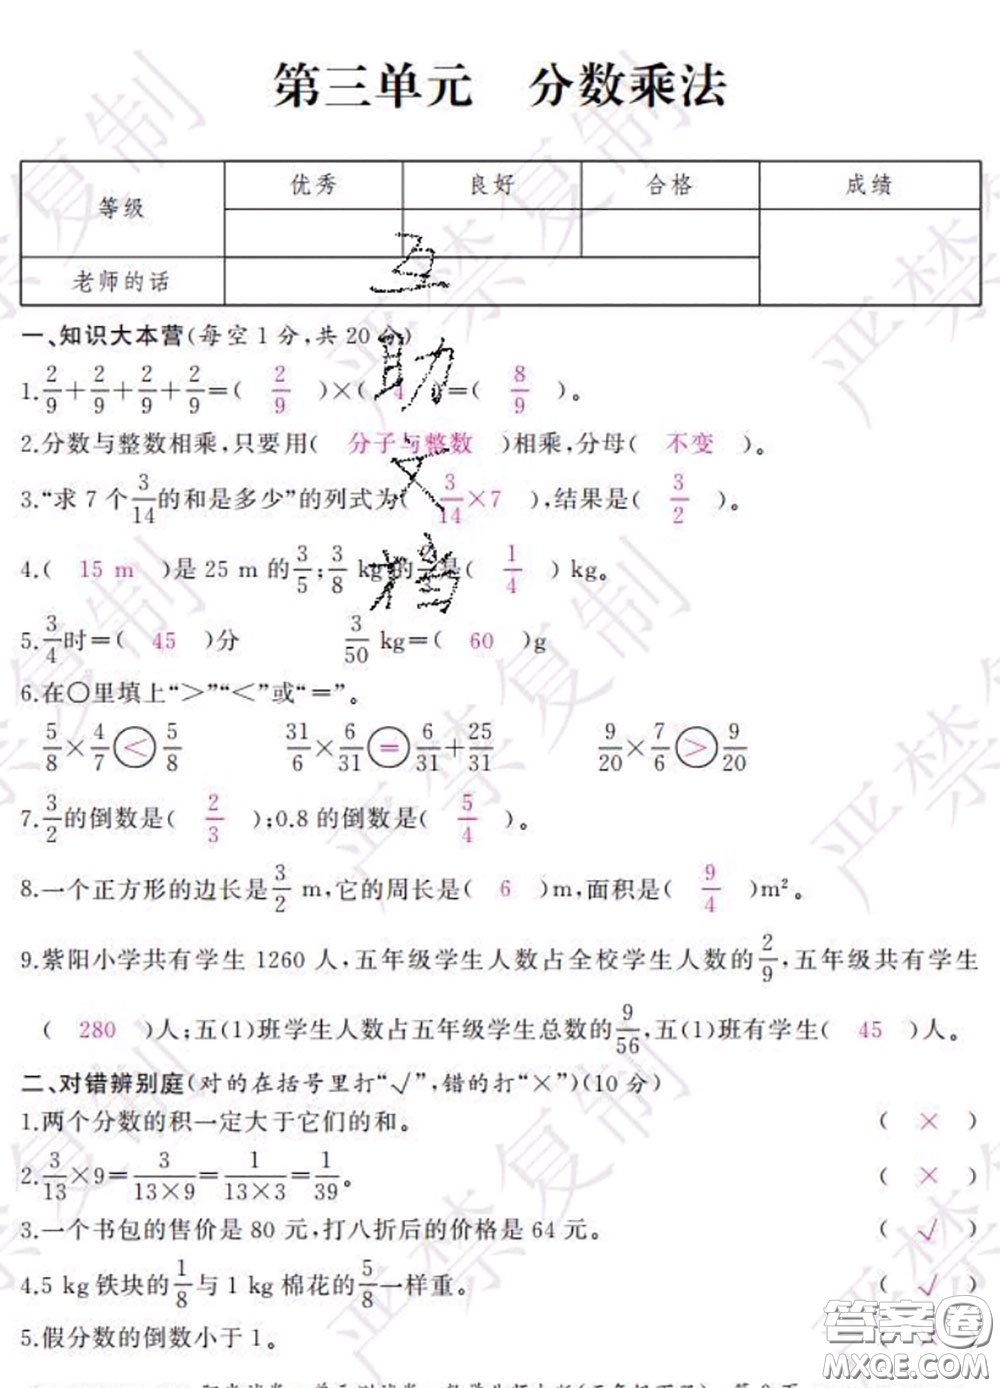 第三单元 分数乘法
等级 优秀 良好 合格 成绩
老师的话
一、知识大本营(每空1分,共20分)
1.2/9+2/9+2/9+2/9=( 2/9 )×( 4 )=( 8/9 )。
2.分数与整数相乘,只要用( 分子与整数 )相乘,分母( 不变 )。
3.“求7个3/14的和是多少”的列式为( 3/14×7 ),结果是( 3/2 )。
4.( 15 m )是25 m的3/5;3/8 kg的 是( 1/4 )kg。
5.3/4时=( 45 )分 3/50 kg=( 60 )g
6.在○里填上“>”“<”或“=”。
5/8×4/7 < 5/8 31/6×6/31 = 6/31+25/31 9/20×7/6 > 9/20
7.3/2的倒数是( 2/3 );0.8的倒数是( 5/4 )。
8.一个正方形的边长是3/2 m,它的周长是( 6 )m,面积是( 9/4 )m²。
9.紫阳小学共有学生1260人,五年级学生人数占全校学生人数的2/9,五年级共有学生
( 280 )人;五(1)班学生人数占五年级学生总数的9/56,五(1)班有学生( 45 )人。
二、对错辨别庭(对的在括号里打“√”,错的打“×”)(10分)
1.两个分数的积一定大于它们的和。 ( × )
2.3/13×9=3/(13×9)=1/(13×3)=1/39。 ( × )
3.一个书包的售价是80元,打八折后的价格是64元。 ( √ )
4.5 kg铁块的1/8与1 kg棉花的5/8一样重。 ( √ )
5.假分数的倒数小于1。
互助文档
严禁复制
答案圈
MXQE.COM